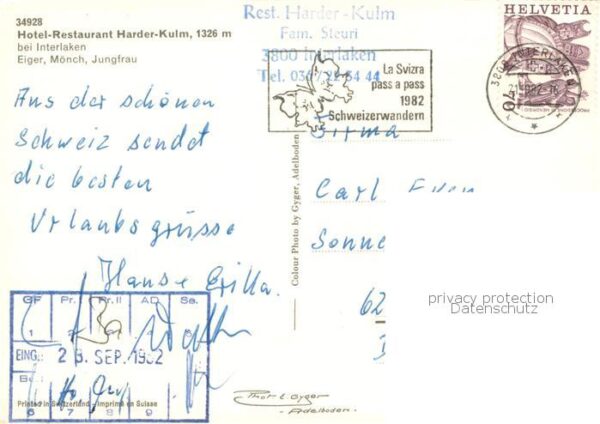 34928
Hotel-Restaurant Harder-Kulm, 1326 m
bei Interlaken
Eiger, Mönch, Jungfrau
Rest. Harder-Kulm
Fam. Steuri
3800 Interlaken
Tel. 036/22 34 44
HELVETIA
3800 INTERLAKEN
La Svizra
pass a pass
1982
Schweizerwandern
Aus der schönen
Schweiz sendet
die besten
Urlaubsgrüsse
Hans + Erilla.
Firma
Carl
Sonne
62
privacy protection
Datenschutz
Colour Photo by Gyger, Adelboden
GF Pr.I Pr.II AD Se.
1 2 3 4 5
EING.: 23. SEP. 1982
6 7 8 9
Printed in Switzerland - Imprimé en Suisse
Thor E. Gyger
Adelboden.